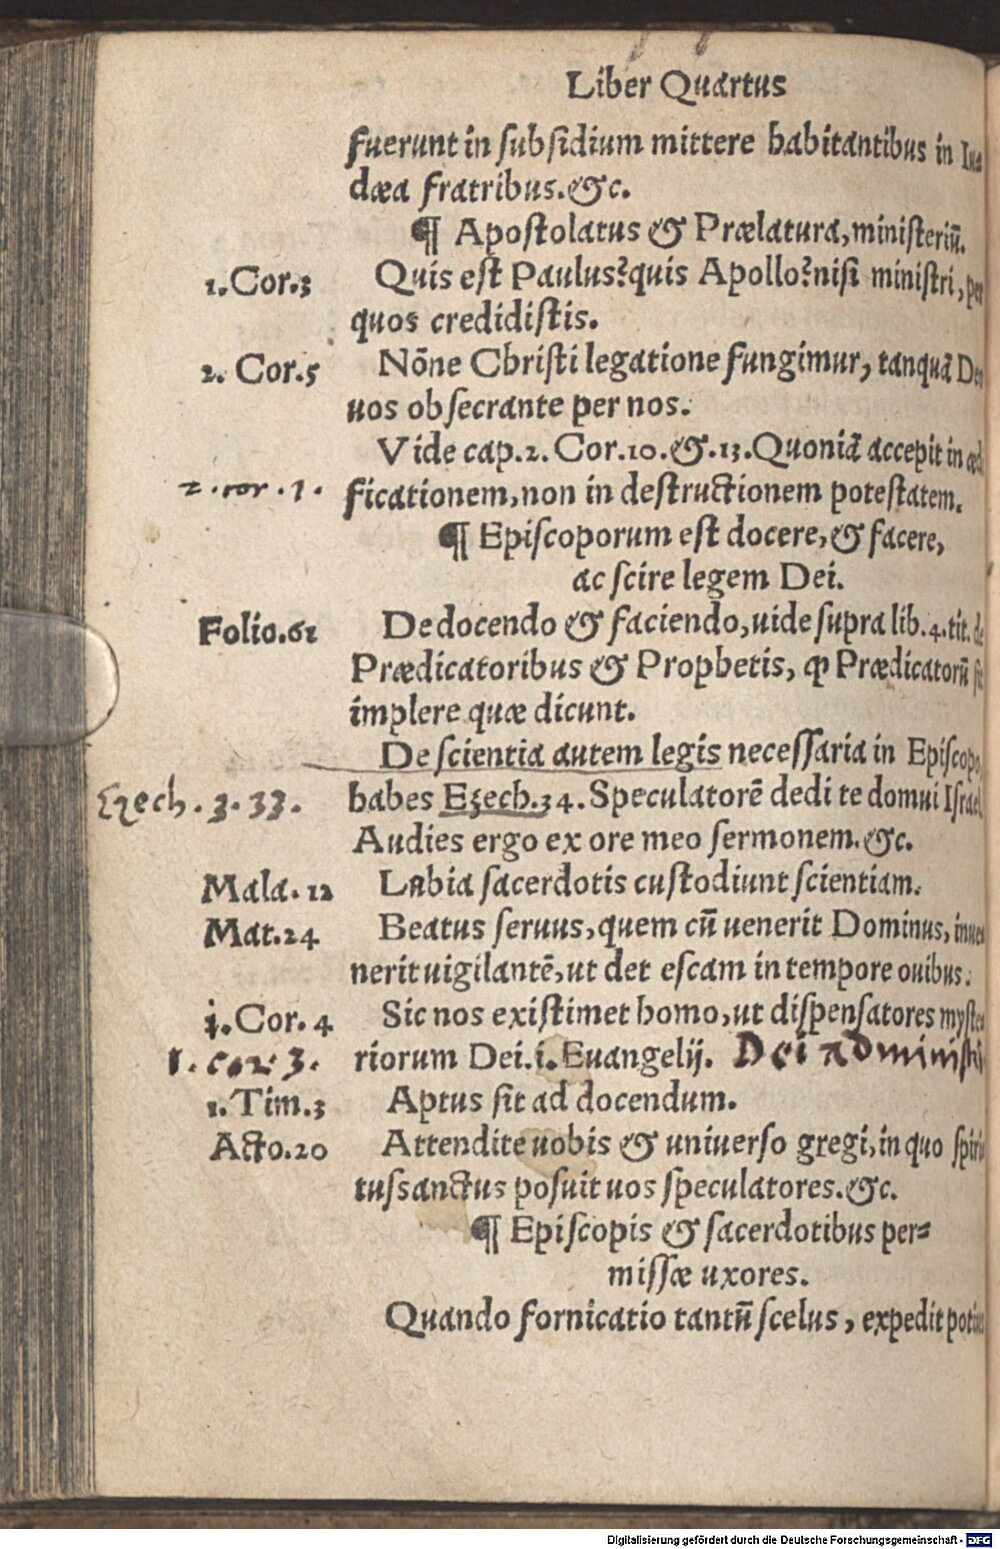 Liber Quartus
fuerunt in ſubſidium mittere habitantibus in Iu-
dæa fratribus.&c.
¶ Apoſtolatus & Prælatura, miniſteriũ.
1.Cor.3 Quis eſt Paulus? quis Apollo? niſi miniſtri, per
quos credidiſtis.
2. Cor.5 Nõne Chriſti legatione fungimur, tanquã Deo
uos obſecrante per nos.
Vide cap.2. Cor.10.&.13. Quoniã accepit in ædi
2.cor.1. ficationem, non in deſtructionem poteſtatem.
¶ Epiſcoporum eſt docere, & facere,
ac ſcire legem Dei.
Folio.61 De docendo & faciendo, uide ſupra lib.4.tit. de
Prædicatoribus & Prophetis, ꝙ Prædicatorũ ſit
implere quæ dicunt.
De ſcientia autem legis neceſſaria in Epiſcopo,
Ezech.3.33. habes Ezech.34. Speculatorẽ dedi te domui Iſrael
Audies ergo ex ore meo ſermonem.&c.
Mala.12 Labia ſacerdotis cuſtodiunt ſcientiam.
Mat.24 Beatus ſeruus, quem cũ uenerit Dominus, inue
nerit uigilantẽ, ut det eſcam in tempore ouibus.
j.Cor.4 Sic nos exiſtimet homo, ut diſpenſatores myſte
1.cor 3. riorum Dei.i. Euangelij. Dei adminiſtri
1.Tim.3 Aptus ſit ad docendum.
Acto.20 Attendite uobis & uniuerſo gregi, in quo ſpiri
tuſsanctus poſuit uos ſpeculatores.&c.
¶ Epiſcopis & ſacerdotibus per=
miſſæ uxores.
Quando fornicatio tantũ ſcelus, expedit potius
Digitalisierung gefördert durch die Deutsche Forschungsgemeinschaft - DFG